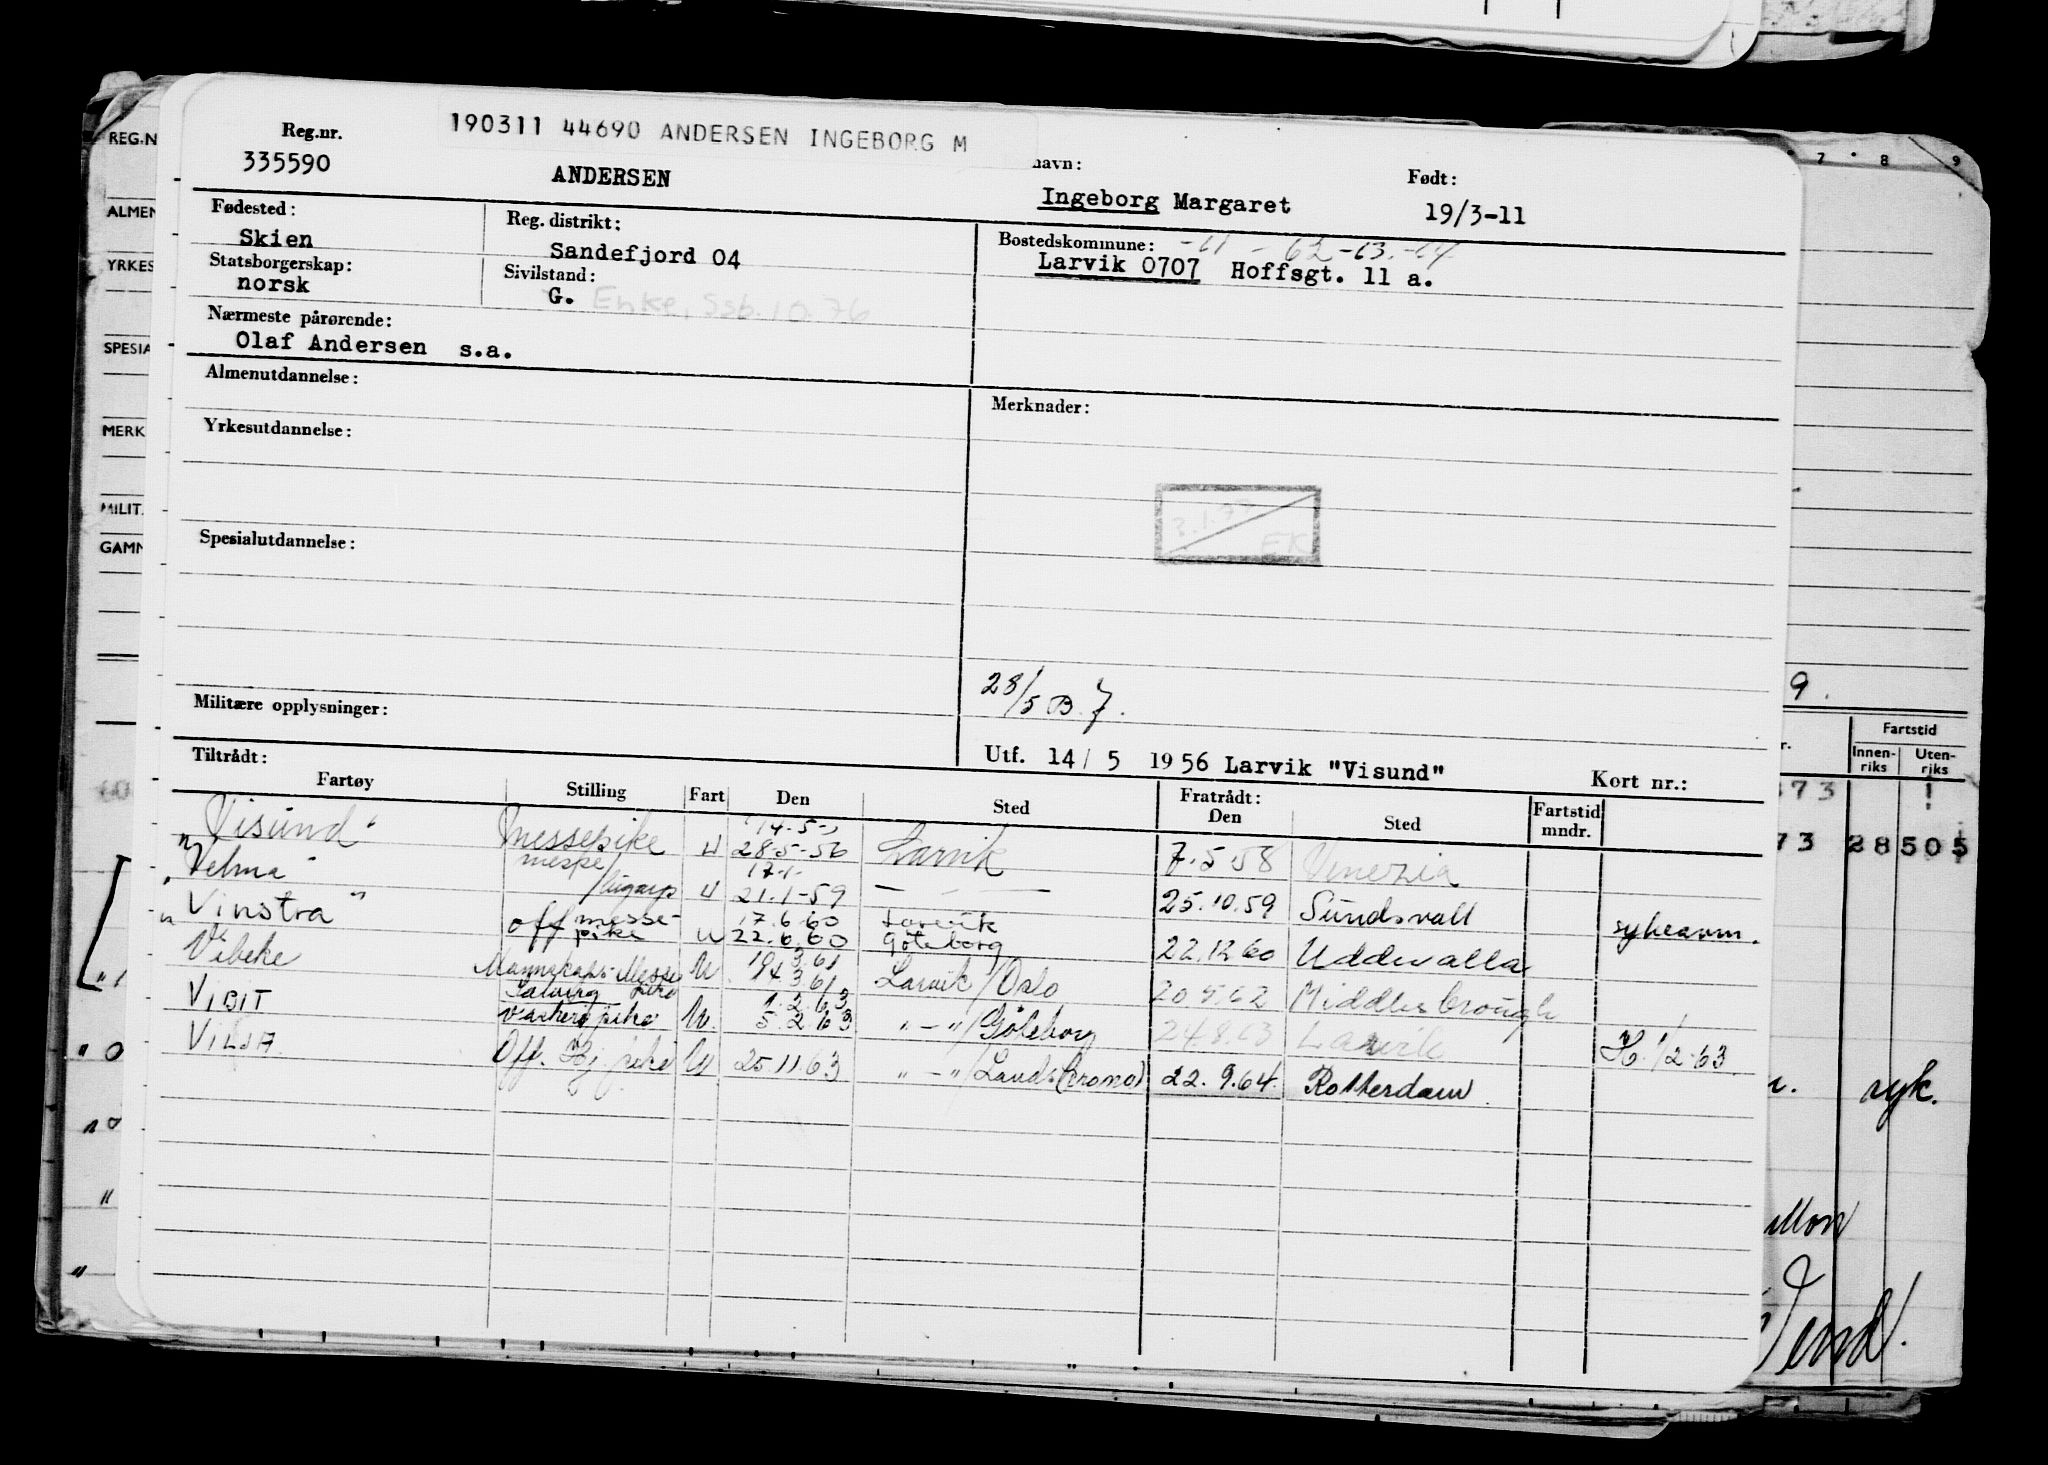 190311 44690 ANDERSEN INGEBORG M
Reg.nr. navn: Født:
335590 ANDERSEN Ingeborg Margaret 19/3-11
Fødested: Reg. distrikt: Bostedskommune: -61 - 62 -63.-64
Skien Sandefjord 04 Larvik 0707 Hoffsgt. 11 a.
Statsborgerskap: Sivilstand:
norsk G. Enke, Ssb. 10.76
Nærmeste pårørende:
Olaf Andersen s.a.
Almenutdannelse: Merknader:
Yrkesutdannelse:
3.1.77
EK
Spesialutdannelse:
28/5 B. 7.
Militære opplysninger:
Utf. 14/ 5 1956 Larvik "Visund" Kort nr.:
Tiltrådt: Fratrådt:
Fartøy Stilling Fart Den Sted Den Sted Fartstid mndr.
Visund" messepike U 14-5- 28-5-56 Larvik 7.5.58 Venezia
"Velma" messe/ U 17-1- 21.1-59 — — — 25.10.59 Sundsvall
"Vinstra" off messe-pike U 17.6.60 22.6.60 Larvik Göteborg 22.12.60 Uddevalla
Vibeke Mannskaps-Messe pike U 19.3.61 Larvik/Oslo 20.5.62 Middlesbrough
VIBIT U. 1.2.63 5.2.63 " - "/Göteborg 24.8.63 Larvik 1/2-63
VILJA Off. pike U 25.11.63 " - "/Landskrona) 22.9.64. Rotterdam.
REG.N
ALMEN
YRKES
SPESIA
MERK
MILIT.
GAMN
7 8 9
9.
Fartstid
Innen-riks Uten-riks
73
73 28 505
syk.